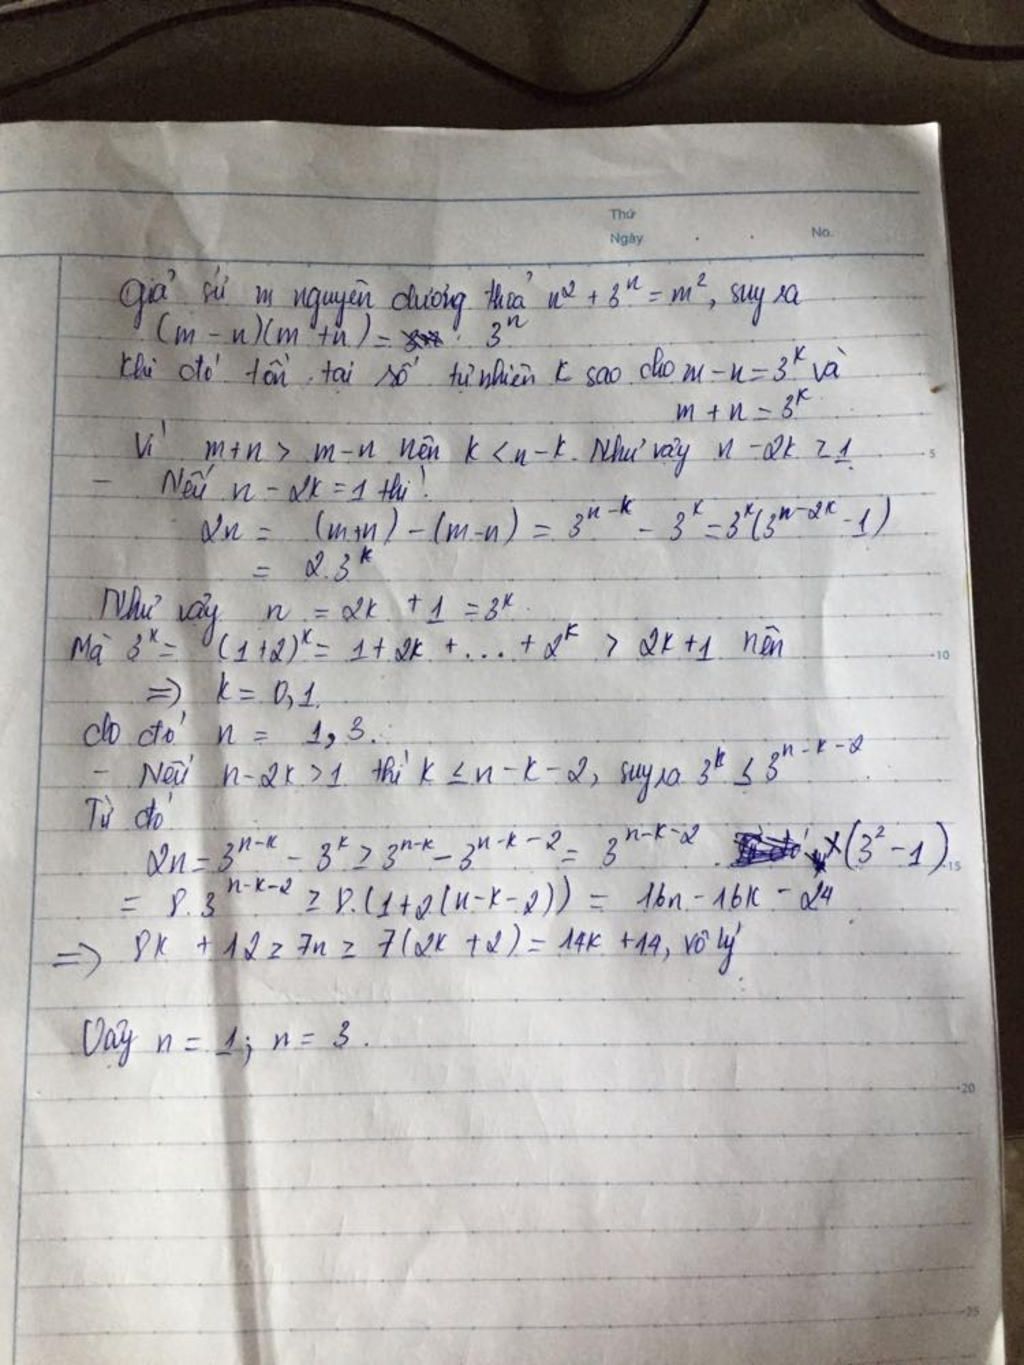 Thứ
Ngày
No.
Giả sử m nguyên dương thoả n² + 3ⁿ = m², suy ra
(m - n)(m + n) = 3ⁿ
Khi đó tồn tại số tự nhiên k sao cho m - n = 3ᵏ và
m + n = 3ᵏ
Vì m+n > m-n nên k < n-k. Như vậy n - 2k ≥ 1
5
- Nếu n - 2k = 1 thì:
2n = (m+n) - (m-n) = 3ⁿ⁻ᵏ - 3ᵏ = 3ᵏ(3ⁿ⁻²ᵏ - 1)
= 2.3ᵏ
Như vậy n = 2k + 1 = 3ᵏ.
Mà 3ᵏ = (1+2)ᵏ = 1 + 2k + ... + 2ᵏ > 2k+1 nên
10
=> k = 0,1.
do đó n = 1, 3.
- Nếu n-2k > 1 thì k ≤ n-k-2, suy ra 3ᵏ ≤ 3ⁿ⁻ᵏ⁻²
Từ đó
2n = 3ⁿ⁻ᵏ - 3ᵏ ≥ 3ⁿ⁻ᵏ - 3ⁿ⁻ᵏ⁻² = 3ⁿ⁻ᵏ⁻² x (3² - 1)
15
= 8.3ⁿ⁻ᵏ⁻² ≥ 8.(1+2(n-k-2)) = 16n - 16k - 24
=> 8k + 12 ≥ 7n ≥ 7(2k + 2) = 14k + 14, vô lý
Vậy n = 1; n = 3.
20
25